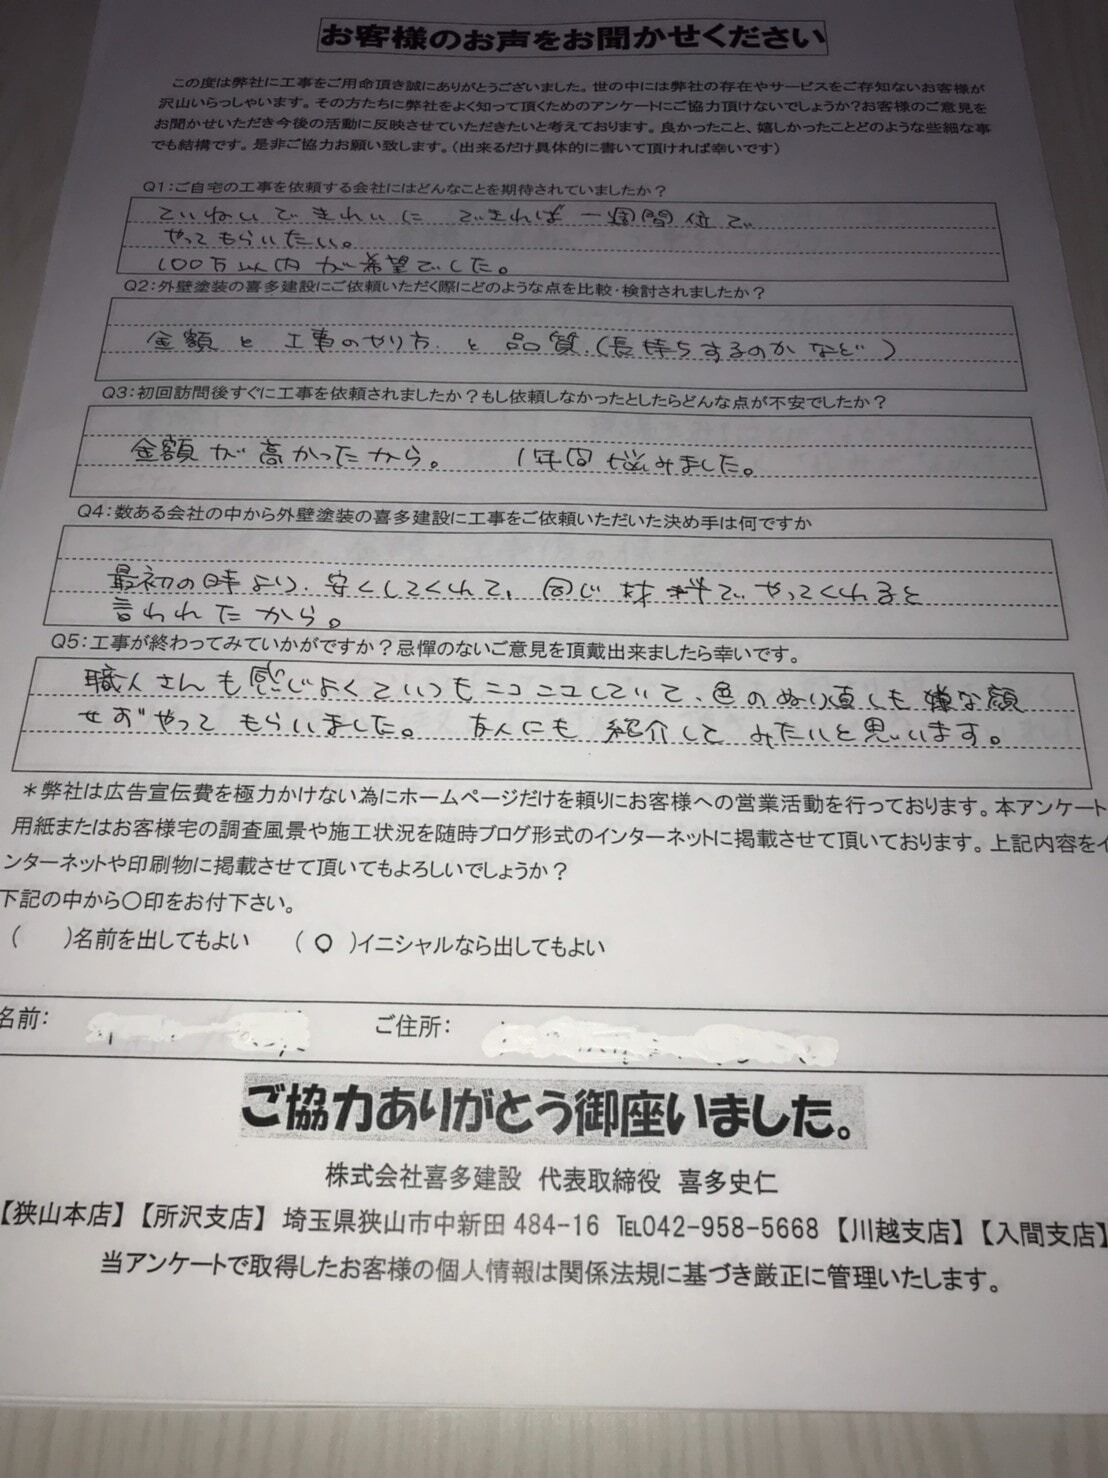 お客様のお声をお聞かせください
この度は弊社に工事をご用命頂き誠にありがとうございました。世の中には弊社の存在やサービスをご存知ないお客様が
沢山いらっしゃいます。その方たちに弊社をよく知って頂くためのアンケートにご協力頂けないでしょうか?お客様のご意見を
お聞かせいただき今後の活動に反映させていただきたいと考えております。良かったこと、嬉しかったことどのような些細な事
でも結構です。是非ご協力お願い致します。(出来るだけ具体的に書いて頂ければ幸いです)
Q1:ご自宅の工事を依頼する会社にはどんなことを期待されていましたか?
ていねいできれいに できれば 一週間位で
やってもらいたい。
100万以内が希望でした。
Q2:外壁塗装の喜多建設にご依頼いただく際にどのような点を比較・検討されましたか?
金額と工事のやり方.と品質.(長持ちするのかなど)
Q3:初回訪問後すぐに工事を依頼されましたか?もし依頼しなかったとしたらどんな点が不安でしたか?
金額が高かったから。 1年間悩みました。
Q4:数ある会社の中から外壁塗装の喜多建設に工事をご依頼いただいた決め手は何ですか
最初の時より、安くしてくれて、同じ材料でやってくれると
言われたから。
Q5:工事が終わってみていかがですか?忌憚のないご意見を頂戴出来ましたら幸いです。
職人さんも感じよくていつもニコニコしていて、色のぬり直しも嫌な顔
せずやってもらいました。 友人にも紹介してみたいと思います。
*弊社は広告宣伝費を極力かけない為にホームページだけを頼りにお客様への営業活動を行っております。本アンケート
用紙またはお客様宅の調査風景や施工状況を随時ブログ形式のインターネットに掲載させて頂いております。上記内容をイ
ンターネットや印刷物に掲載させて頂いてもよろしいでしょうか?
下記の中から〇印をお付下さい。
( )名前を出してもよい (○)イニシャルなら出してもよい
名前: ご住所:
ご協力ありがとう御座いました。
株式会社喜多建設 代表取締役 喜多史仁
【狭山本店】【所沢支店】埼玉県狭山市中新田484-16 ℡042-958-5668【川越支店】【入間支店】
当アンケートで取得したお客様の個人情報は関係法規に基づき厳正に管理いたします。